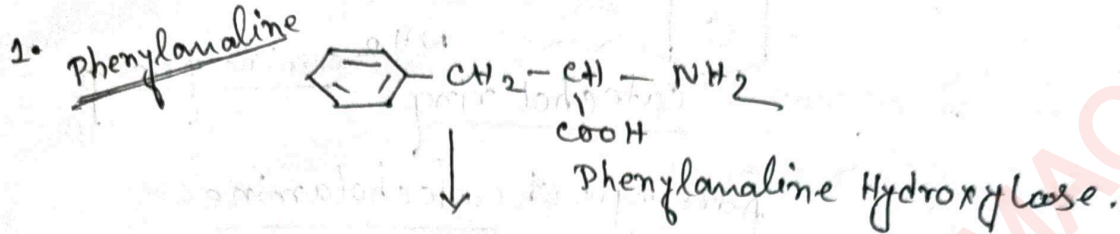 1. Phenylanaline
CH2 - CH - NH2
COOH
Phenylanaline Hydroxylase.